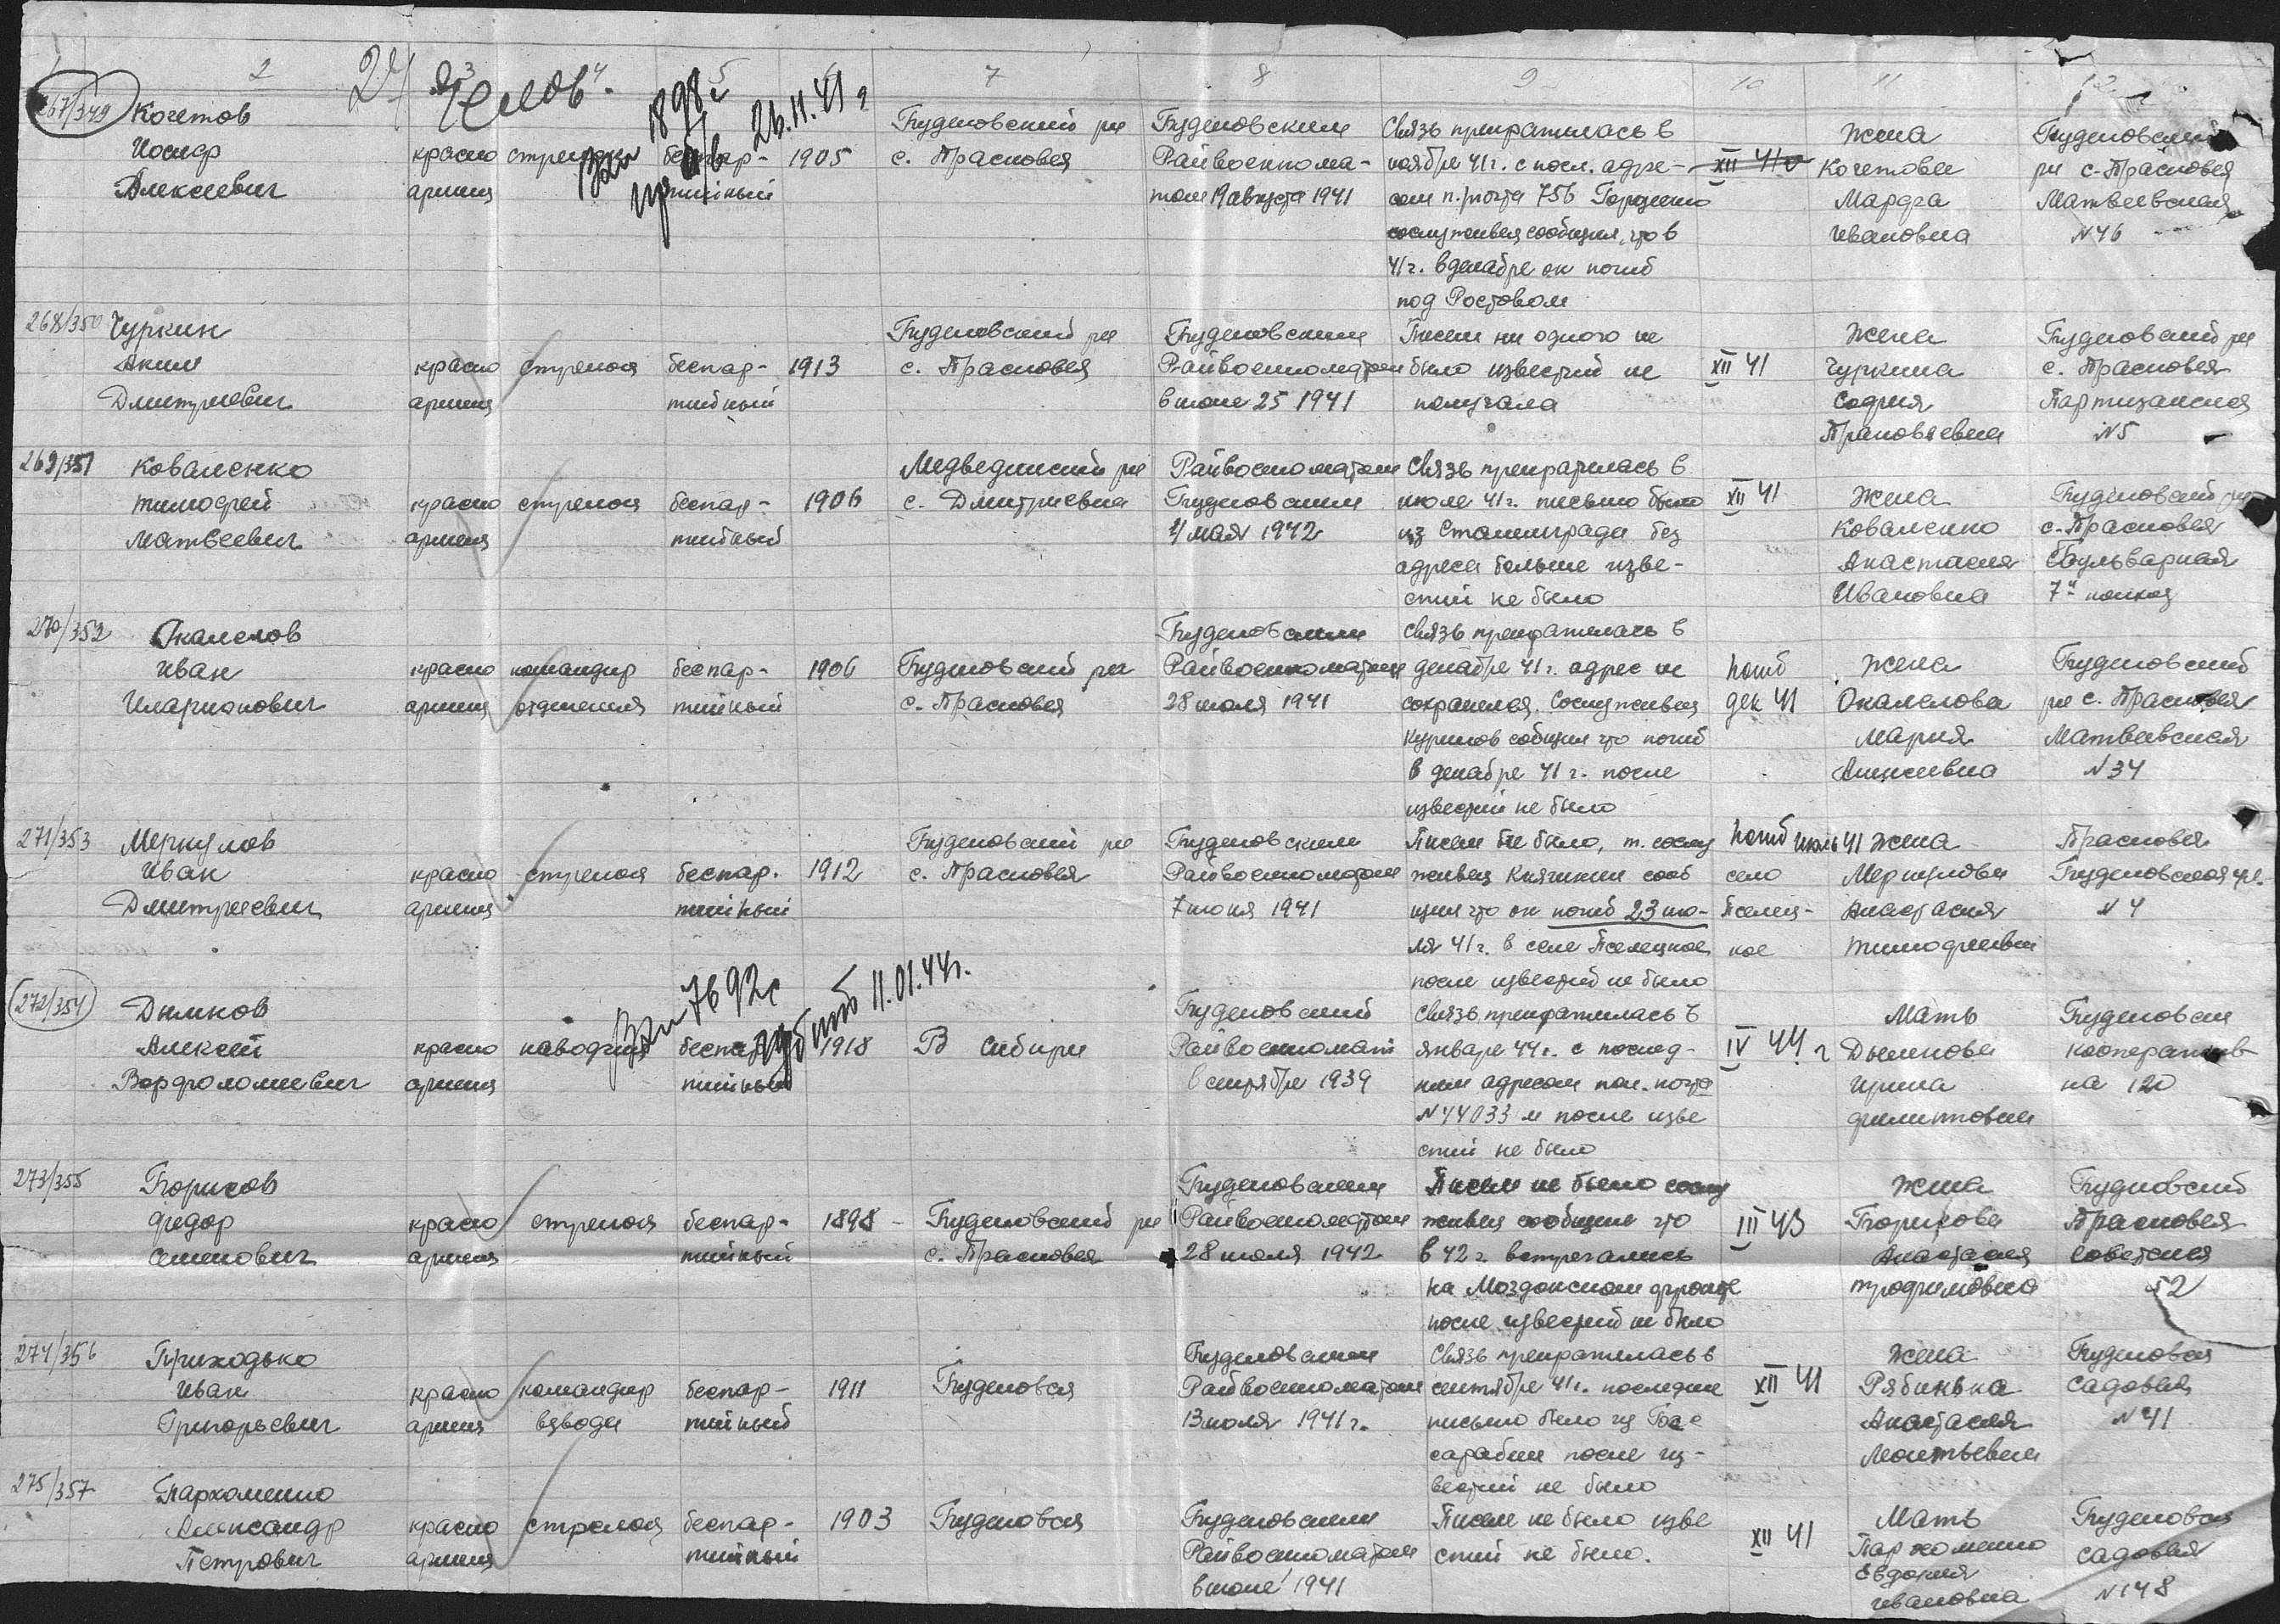 2 3 4 5 7 8 9 10 11 12
27 Челов.
267/349 Кочетов
Иосиф
Алексеевич
красно
армеец
беспар-
тийный
1905
1898с
26.11.41 г
Буденовский р-н
с. Прасковея
Буденовским
Райвоенкома-
том 19 августа 1941
Связь прекратилась в
ноябре 41 г. с посл. адре-
сом п./почта 756
сослуживец сообщил, что в
41 г. в декабре он погиб
под Ростовом
XII 41
жена
Кочетова
Марфа
Ивановна
Буденовский
р-н с. Прасковея
Матвеевская
N 46
268/350 Чуркин
Аким
Дмитриевич
красно
армеец
стрелок
беспар-
тийный
1913
Буденовский р-н
с. Прасковея
Буденовским
Райвоенкоматом
в июле 25 1941
Писем ни одного не
было известий не
получала
XII 41
жена
Чуркина
София
Буденовский р-н
с. Прасковея
Партизанская
N 5
269/351 Коваленко
Тимофей
Матвеевич
красно
армеец
стрелок
беспар-
тийный
1906
с. Дмитриевка
Райвоенкоматом
Буденовским
1/мая 1942
Связь прекратилась в
июле 41 г. письмо было
из Сталинграда без
адреса больше изве-
стий не было
XII 41
жена
Коваленко
Анастасия
Ивановна
Буденовский р-н
с. Прасковея
Бульварная
270/352 Окалелов
Иван
Иларионович
красно
армеец
командир
отделения
беспар-
тийный
1906
Буденовский р-н
с. Прасковея
Буденовским
Райвоенкоматом
28 июля 1941
Связь прекратилась в
декабре 41 г. адрес не
сохранился. Сослуживец
сообщил что погиб
в декабре 41 г. после
известий не было
погиб
дек 41
жена
Окалелова
Мария
Алексеевна
Буденовский
р-н с. Прасковея
Матвеевская
N 34
271/353 Меркулов
Иван
Дмитриевич
красно
армеец
стрелок
беспар.
тийный
1912
Буденовский р-н
с. Прасковея
Буденовским
Райвоенкоматом
7 июня 1941
Писем не было, т. сослу
живец Княгинин сооб
щил что он погиб 23 ию-
ля 41 г. в селе Пселецкое
после известий не было
погиб июль 41
село
Пселец-
кое
жена
Меркулова
Анастасия
Тимофеевна
Прасковея
Буденовская ул.
N 4
272/354 Дымков
Алексей
Варфоломеевич
красно
армеец
наводчик
беспар
тийный
7692с
убит 11.01.44г.
1918
В Сибири
Буденовский
Райвоенкомат
в сентябре 1939
Связь прекратилась в
январе 44 г. с послед-
ним адресом пол. почта
N 44033 м после изве
стий не было
IV 44 г
Мать
Дымкова
Ирина
Филипповна
Буденовск
кооператив-
на 120
273/355 Борисов
Федор
Семенович
красно
армеец
стрелок
беспар-
тийный
1898
Буденовский р-н
с. Прасковея
Буденовским
Райвоенкоматом
28 июля 1942
Писем не было сослу
живец сообщил что
в 42 г. встречались
на Моздокском фронте
после известий не было
III 43
жена
Борисова
Анастасия
Трофимовна
Буденовский
Прасковея
Советская
52
274/356 Приходько
Иван
Григорьевич
красно
армеец
командир
взвода
беспар-
тийный
1911
Буденовск
Буденовским
Райвоенкоматом
13 июля 1941 г.
Связь прекратилась в
сентябре 41 г. последнее
письмо было из Бес
сарабии после из-
вестий не было
XII 41
жена
Анастасия
Леонтьевна
Буденовск
садовая
N 41
275/357 Пархоменко
Александр
Петрович
красно
армеец
стрелок
беспар-
тийный
1903
Буденовск
Буденовским
Райвоенкоматом
в июле 1941
Писем не было изве
стий не было.
XII 41
Мать
Пархоменко
Евдокия
Ивановна
Буденовск
садовая
N 148